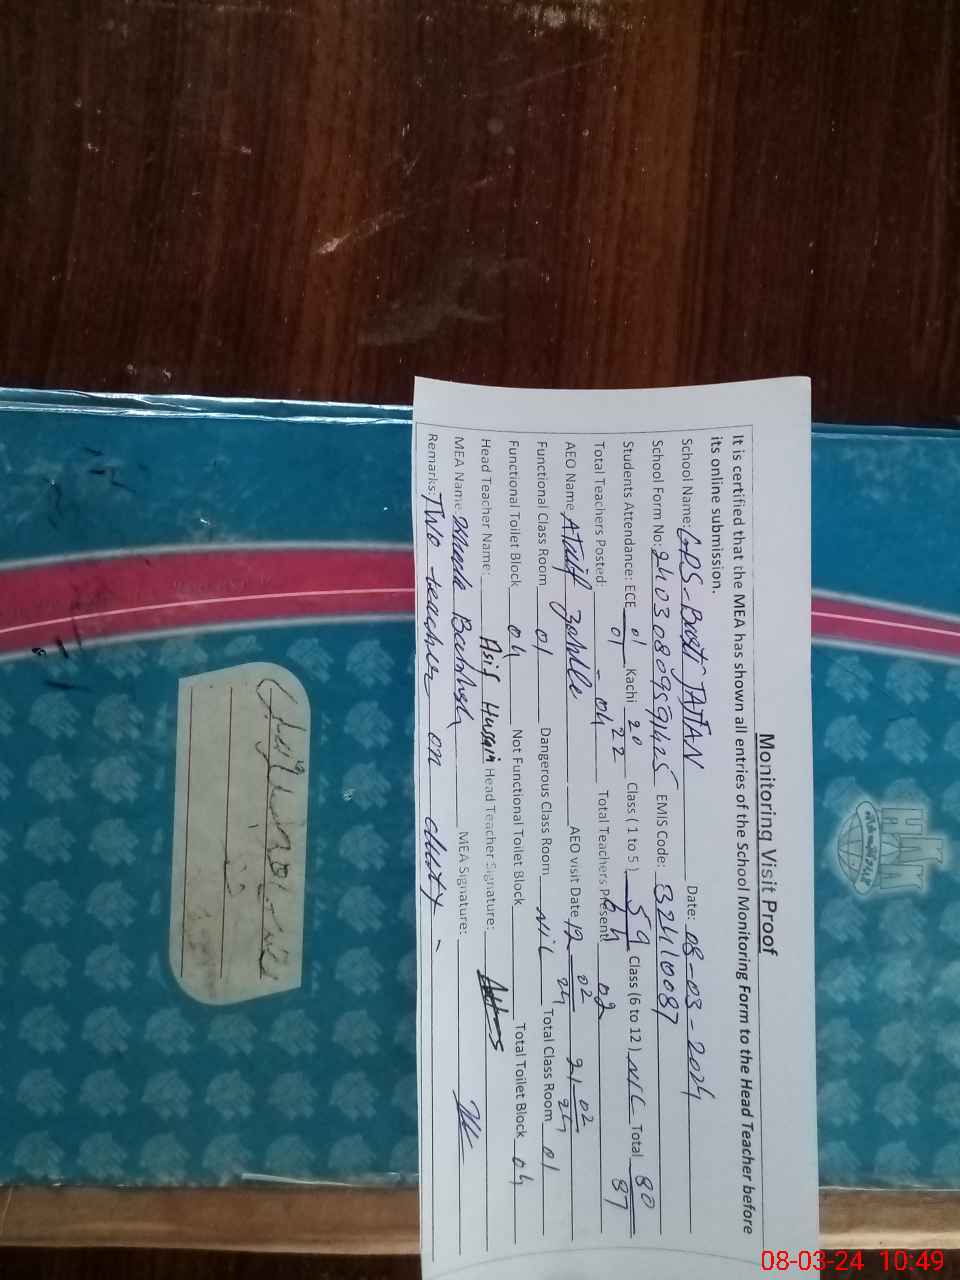 Monitoring Visit Proof
It is certified that the MEA has shown all entries of the School Monitoring Form to the Head Teacher before
its online submission.
School Name: GPS-Basti JATTAN Date: 08-03-2024
School Form No: 2403080959425 EMIS Code: 32410087
Students Attendance: ECE 01/01 Kachi 20/22 Class ( 1 to 5 ) 59/64 Class (6 to 12 ) NIL Total 80/87
Total Teachers Posted: - 04 Total Teachers Present: 02
AEO Name AEO visit Date 12 02/24 21 02/24
Functional Class Room 01 Dangerous Class Room NIL Total Class Room 01
Functional Toilet Block 04 Not Functional Toilet Block Total Toilet Block 04
Head Teacher Name: Asif Hussain Head Teacher Signature:
MEA Name MEA Signature:
Remarks: Two teacher on duty -
08-03-24 10:49